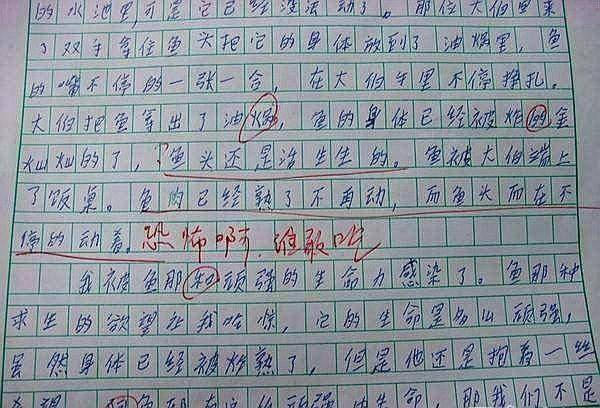 的水池里,可是它已经没法动了。那位大伯
了双手拿住鱼头把它的身体放到了油锅里,鱼
的嘴不停的一张一合,在大伯手里不停挣扎。
大伯把鱼拿出了油锅,鱼的身体已经被炸的金
灿灿的了,鱼头还是活生生的。鱼被大伯端上
了饭桌。鱼肉已经熟了不再动,而鱼头而在不
停的动着。恐怖啊,谁敢吃
我被鱼那种顽强的生命力感染了。鱼那种
求生的欲望让我吃惊,它的生命是多么顽强,
虽然身体已经被炸熟了,但是他还是抱着一丝
我们不是